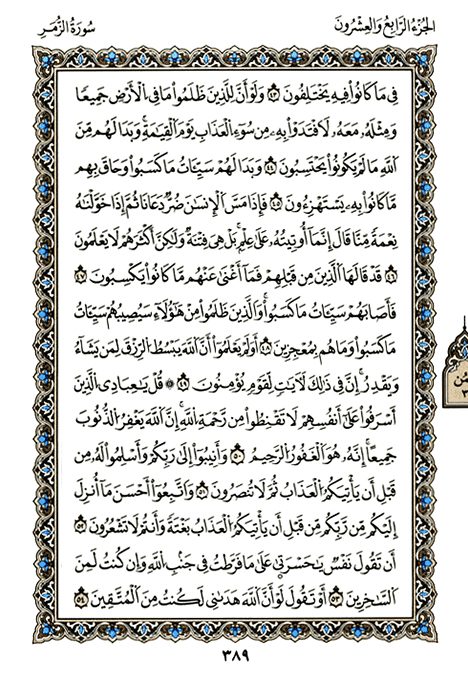 الجُزْءُ الرَّابِعُ وَالعِشْرُونَ سُورَةُ الزُّمَرِ
فِي مَا كَانُوا۟ فِيهِ يَخْتَلِفُونَ ٤٣ وَلَوْ أَنَّ لِلَّذِينَ ظَلَمُوا۟ مَا فِي الْأَرْضِ جَمِيعًا
وَمِثْلَهُۥ مَعَهُۥ لَافْتَدَوْا۟ بِهِۦ مِن سُوٓءِ الْعَذَابِ يَوْمَ الْقِيَٰمَةِ وَبَدَا لَهُم مِّنَ
اللَّهِ مَا لَمْ يَكُونُوا۟ يَحْتَسِبُونَ ٤٤ وَبَدَا لَهُمْ سَيِّـَٔاتُ مَا كَسَبُوا۟ وَحَاقَ بِهِم
مَّا كَانُوا۟ بِهِۦ يَسْتَهْزِءُونَ ٤٥ فَإِذَا مَسَّ الْإِنسَٰنَ ضُرٌّ دَعَانَا ثُمَّ إِذَا خَوَّلْنَٰهُ
نِعْمَةً مِّنَّا قَالَ إِنَّمَآ أُوتِيتُهُۥ عَلَىٰ عِلْمٍ بَلْ هِيَ فِتْنَةٌ وَلَٰكِنَّ أَكْثَرَهُمْ لَا يَعْلَمُونَ
٤٦ قَدْ قَالَهَا الَّذِينَ مِن قَبْلِهِمْ فَمَآ أَغْنَىٰ عَنْهُم مَّا كَانُوا۟ يَكْسِبُونَ ٤٧
فَأَصَابَهُمْ سَيِّـَٔاتُ مَا كَسَبُوا۟ وَالَّذِينَ ظَلَمُوا۟ مِنْ هَٰٓؤُلَآءِ سَيُصِيبُهُمْ سَيِّـَٔاتُ
مَا كَسَبُوا۟ وَمَا هُم بِمُعْجِزِينَ ٤٨ أَوَلَمْ يَعْلَمُوٓا۟ أَنَّ اللَّهَ يَبْسُطُ الرِّزْقَ لِمَن يَشَآءُ
وَيَقْدِرُ إِنَّ فِي ذَٰلِكَ لَءَايَٰتٍ لِّقَوْمٍ يُؤْمِنُونَ ٤٩ ۞ قُلْ يَٰعِبَادِيَ الَّذِينَ
أَسْرَفُوا۟ عَلَىٰٓ أَنفُسِهِمْ لَا تَقْنَطُوا۟ مِن رَّحْمَةِ اللَّهِ إِنَّ اللَّهَ يَغْفِرُ الذُّنُوبَ
جَمِيعًا إِنَّهُۥ هُوَ الْغَفُورُ الرَّحِيمُ ٥٠ وَأَنِيبُوٓا۟ إِلَىٰ رَبِّكُمْ وَأَسْلِمُوا۟ لَهُۥ مِن
قَبْلِ أَن يَأْتِيَكُمُ الْعَذَابُ ثُمَّ لَا تُنصَرُونَ ٥١ وَاتَّبِعُوٓا۟ أَحْسَنَ مَآ أُنزِلَ
إِلَيْكُم مِّن رَّبِّكُم مِّن قَبْلِ أَن يَأْتِيَكُمُ الْعَذَابُ بَغْتَةً وَأَنتُمْ لَا تَشْعُرُونَ ٥٢
أَن تَقُولَ نَفْسٌ يَٰحَسْرَتَىٰ عَلَىٰ مَا فَرَّطتُ فِي جَنۢبِ اللَّهِ وَإِن كُنتُ لَمِنَ
السَّٰخِرِينَ ٥٣ أَوْ تَقُولَ لَوْ أَنَّ اللَّهَ هَدَىٰنِي لَكُنتُ مِنَ الْمُتَّقِينَ ٥٤
٣٨٩